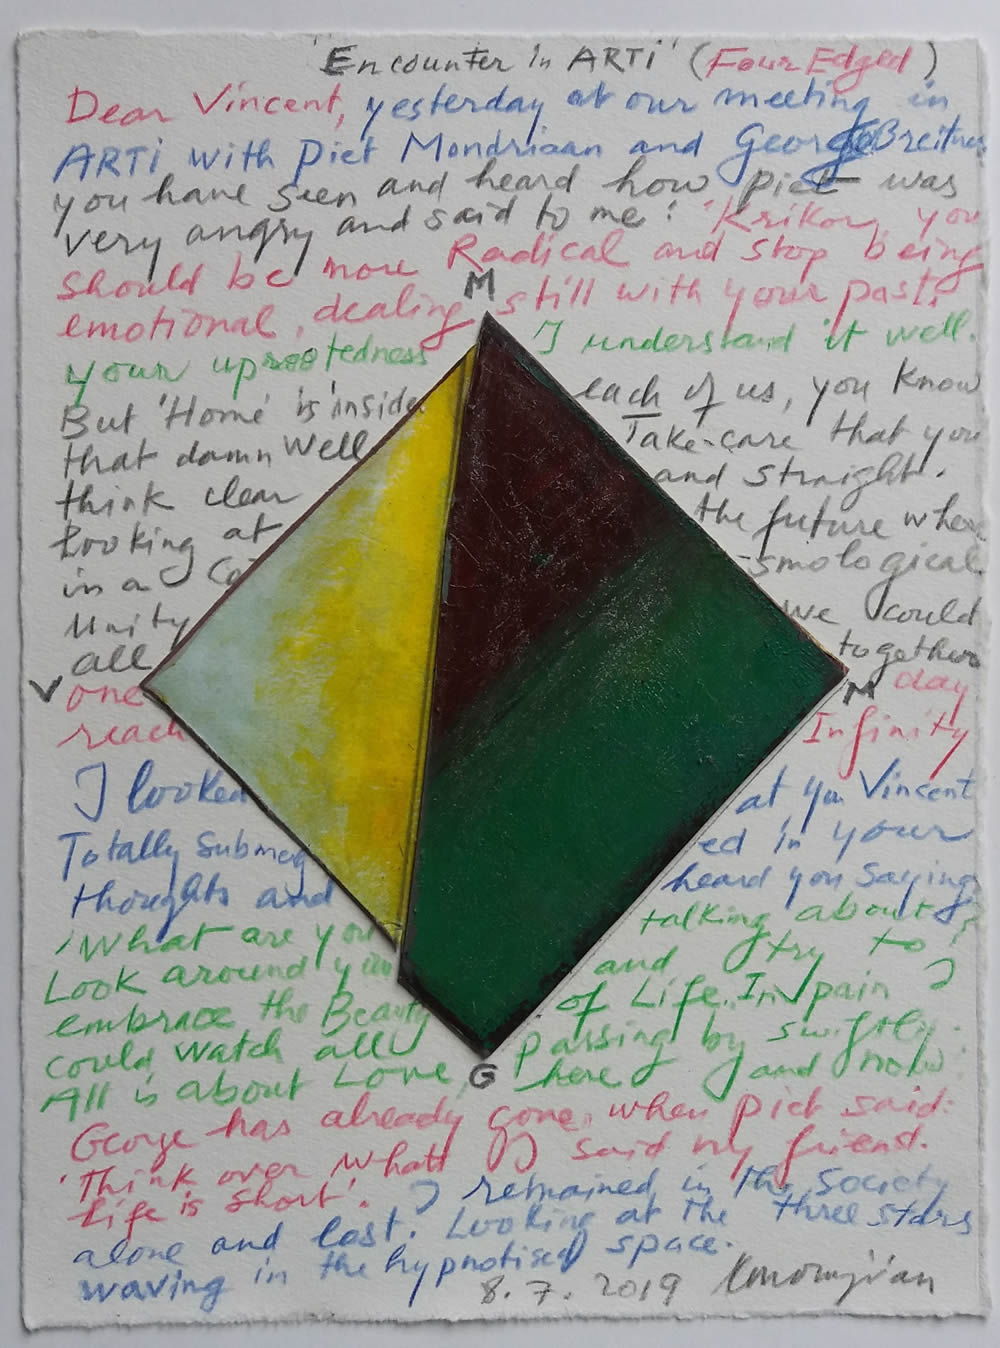 "Encounter in ARTi" (Four Edged)
Dear Vincent, yesterday at our meeting in
ARTi with Piet Mondriaan and George Breitner
you have seen and heard how piet was
very angry and said to me: 'Krikor, you
should be more Radical and stop being
M
emotional, dealing still with your past,
your uprootedness I understand it well.
But 'Home' is inside each of us, you know
that damn well Take-care that you
think clear and straight.
Looking at the future where
in a Co smological
Unity we could
all together
V one M day
reach Infinity
I looked at you Vincent
Totally submerg ed in your
thoughts and heard you saying
'What are you talking about?
Look around you and try to
embrace the Beauty of Life. In pain I
could watch all passing by swiftly.
All is about Love, G here and now.'
George has already gone, when piet said:
'Think over what I said my friend.
Life is short'. I remained in the Society
alone and lost. Looking at the three stars
waving in the hypnotised space.
8.7.2019